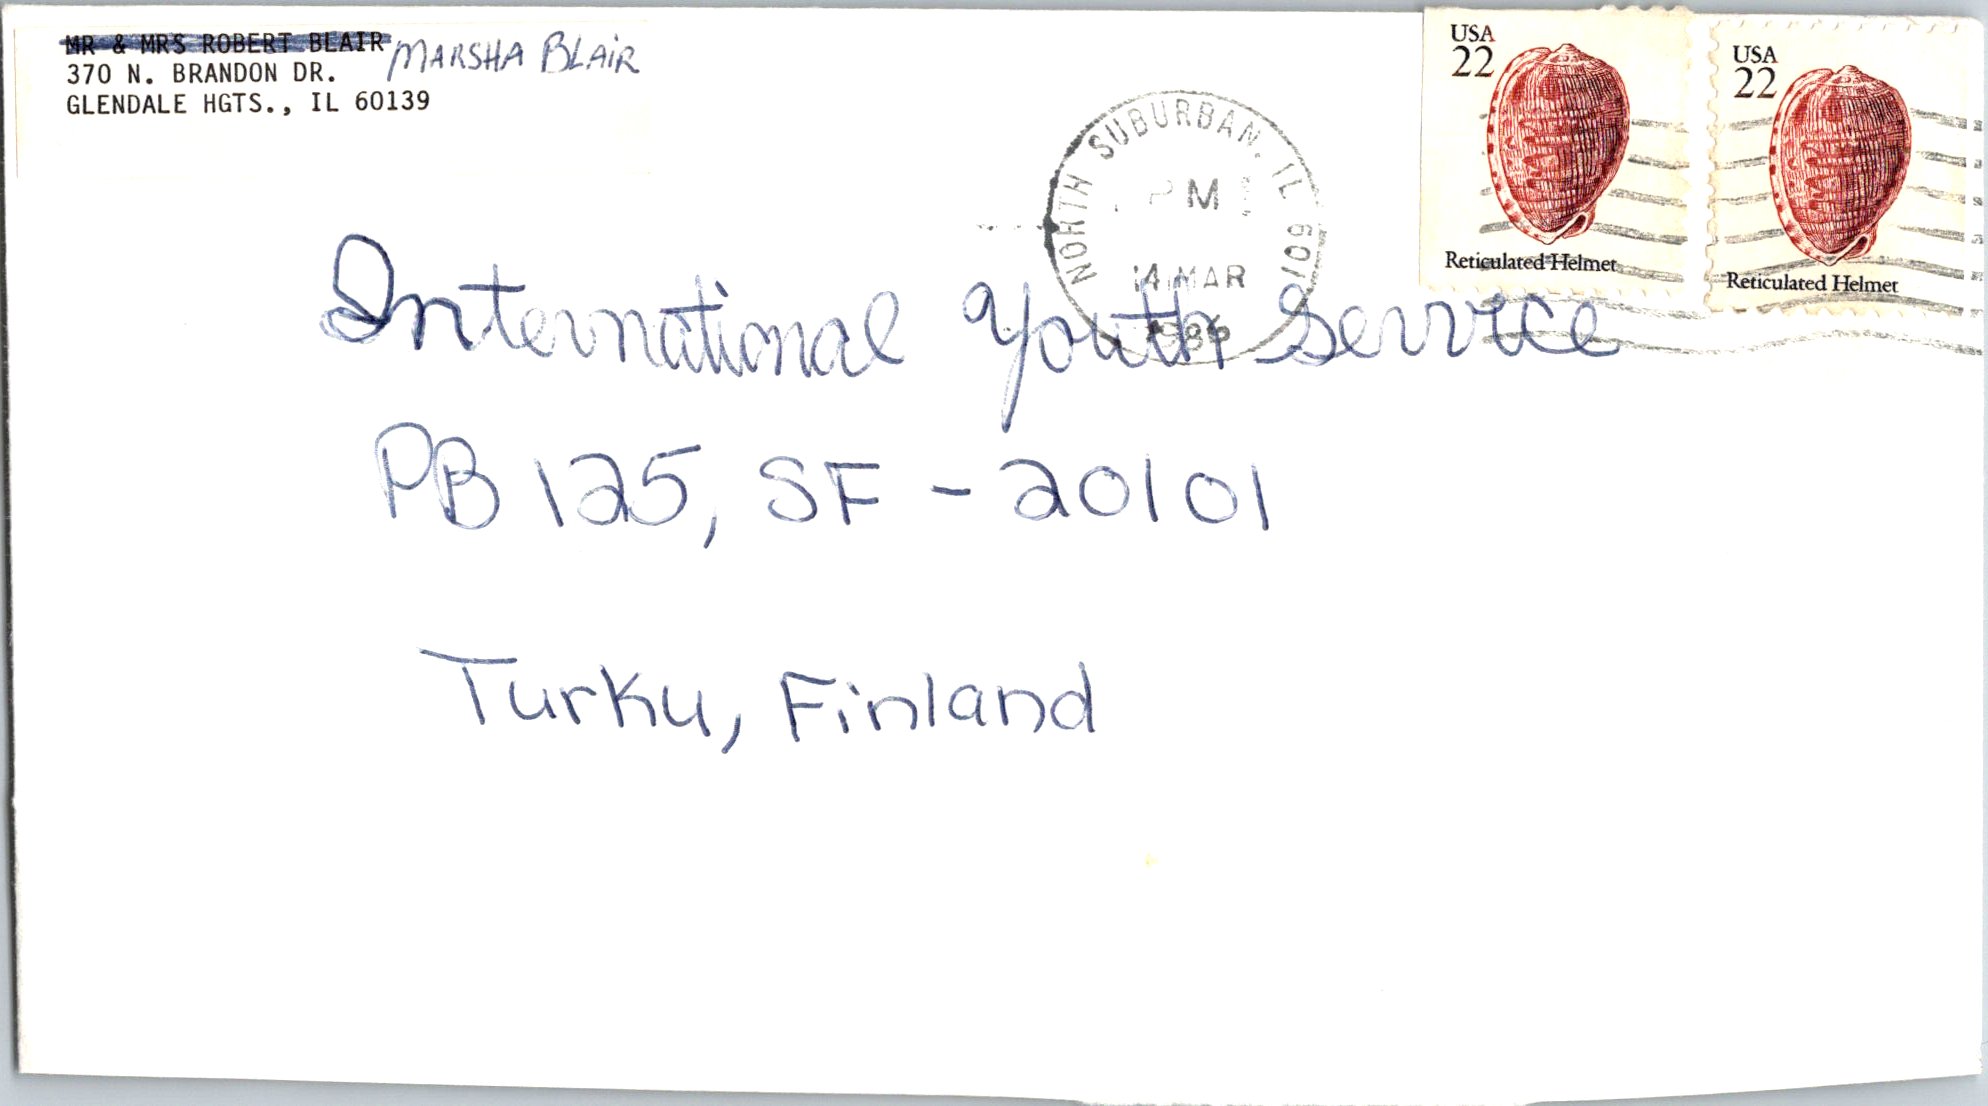 MR & MRS ROBERT BLAIR MARSHA BLAIR
370 N. BRANDON DR.
GLENDALE HGTS., IL 60139
USA
22
Reticulated Helmet
USA
22
Reticulated Helmet
NORTH SUBURBAN, IL 601
PM
14 MAR
1986
International Youth Service
PB 125, SF - 20101
Turku, Finland